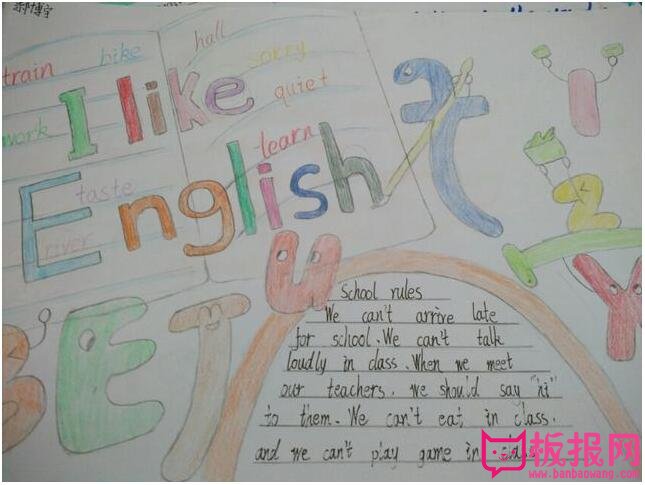 hall
bike
sorry
train
I like
quiet
work
learn
taste
English
river
School rules
We can't arrive late
for school. We can't talk
loudly in class. When we meet
our teachers. we should say "hi"
to them. We can't eat in class.
and we can't play game in
板报网
www.banbaowang.com